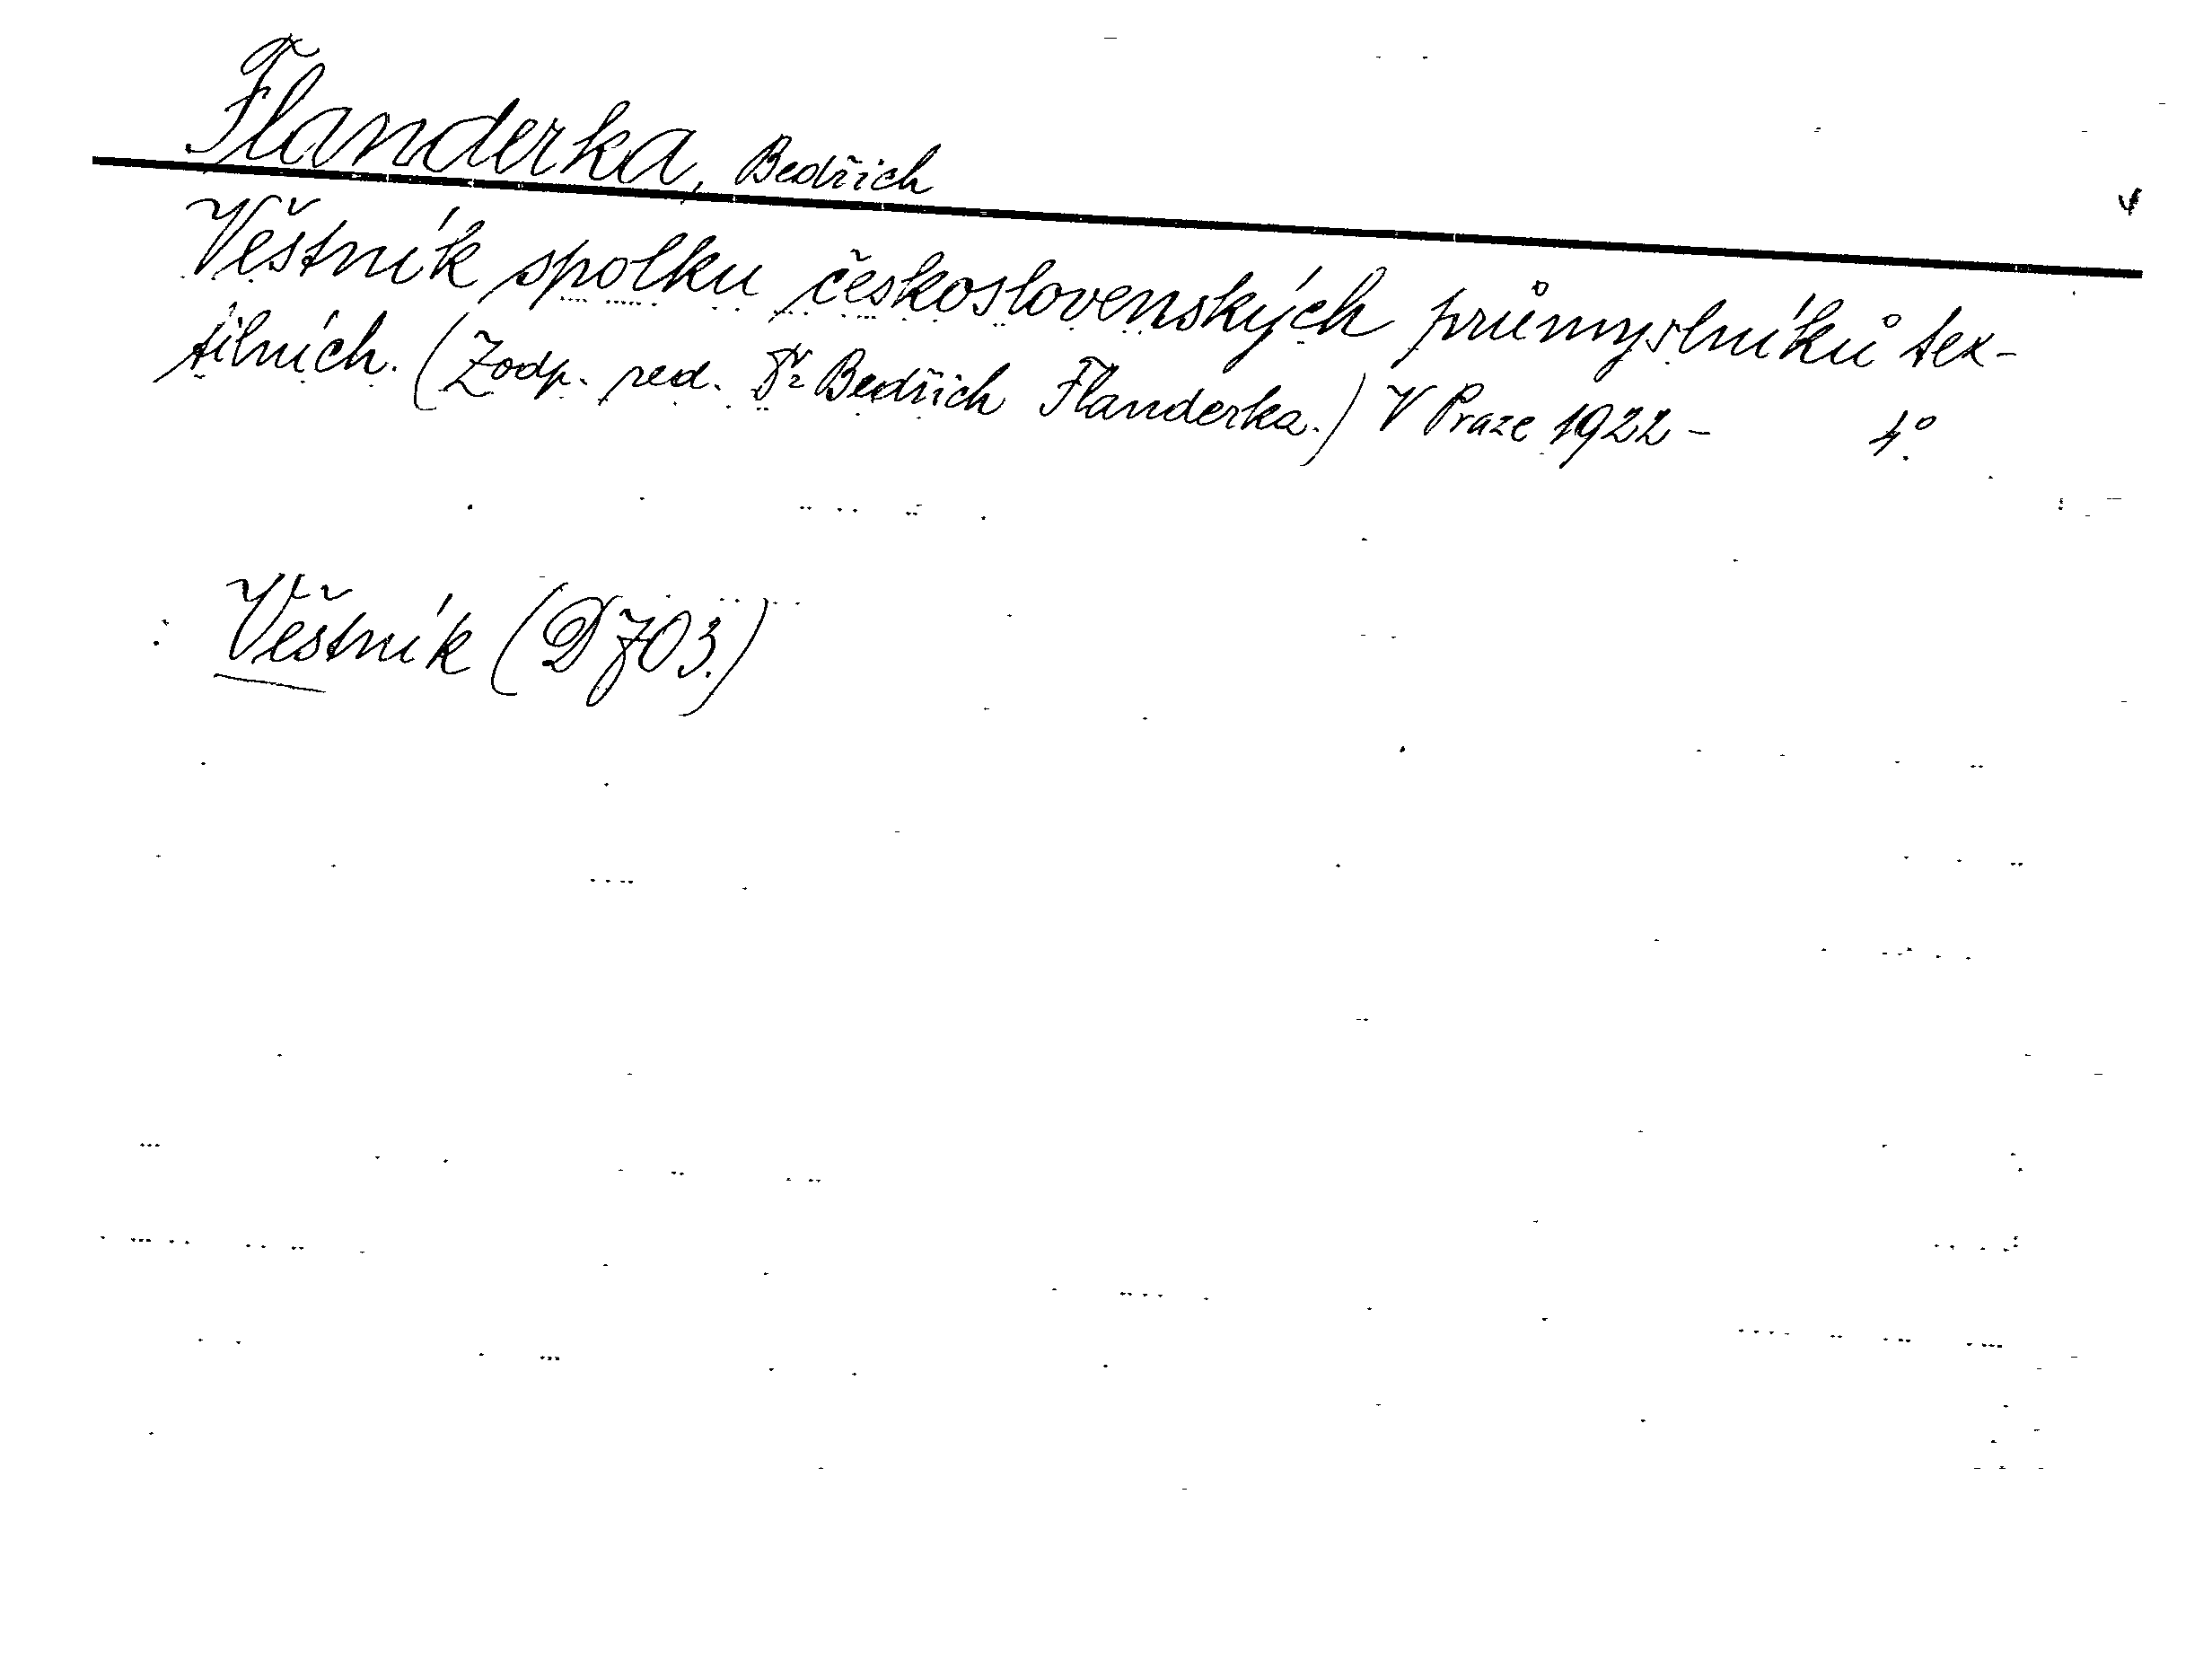 Flanderka, Bedřich
Věstník spolku československých průmyslníků tex-
tilních. (Zodp. red. Dr Bedřich Flanderka.) V Praze 1922 – 4°.
Věstník (D 703.)